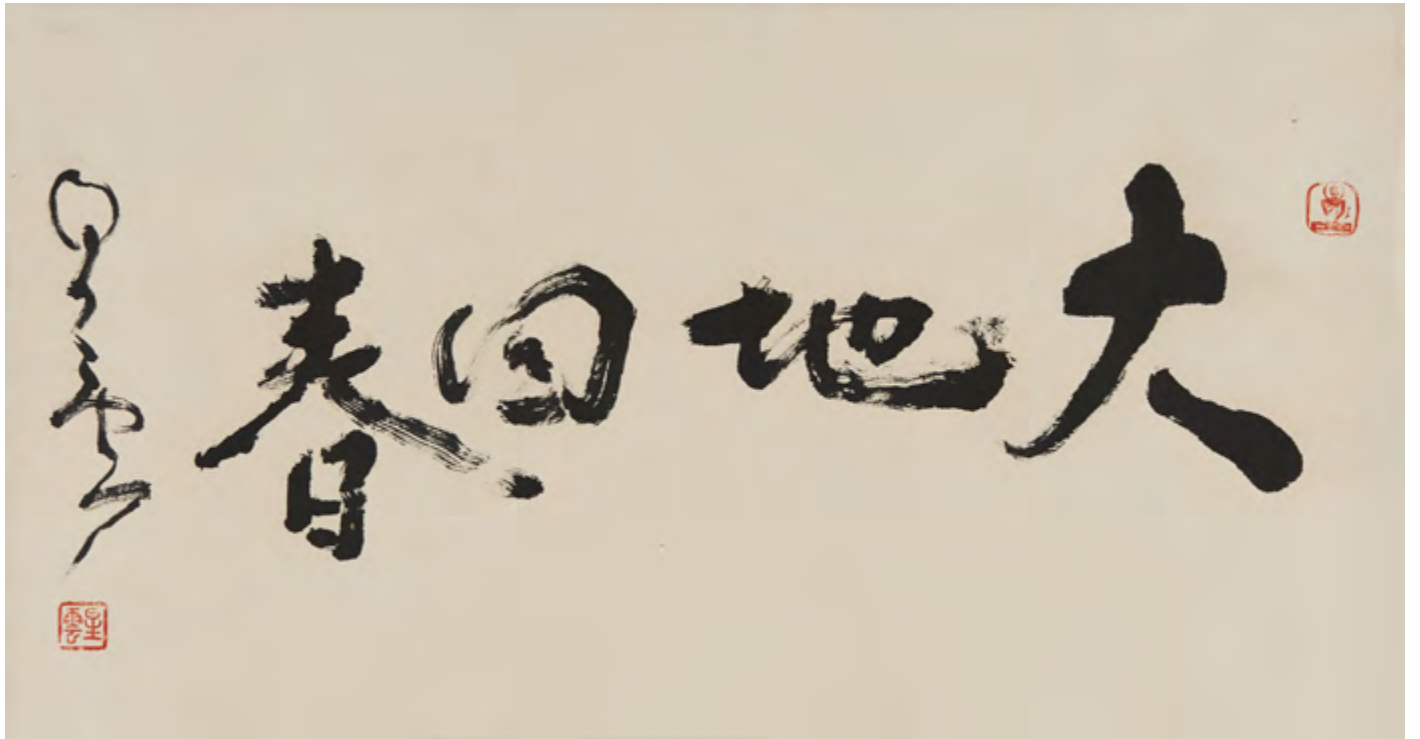 大地回春
星雲
星雲